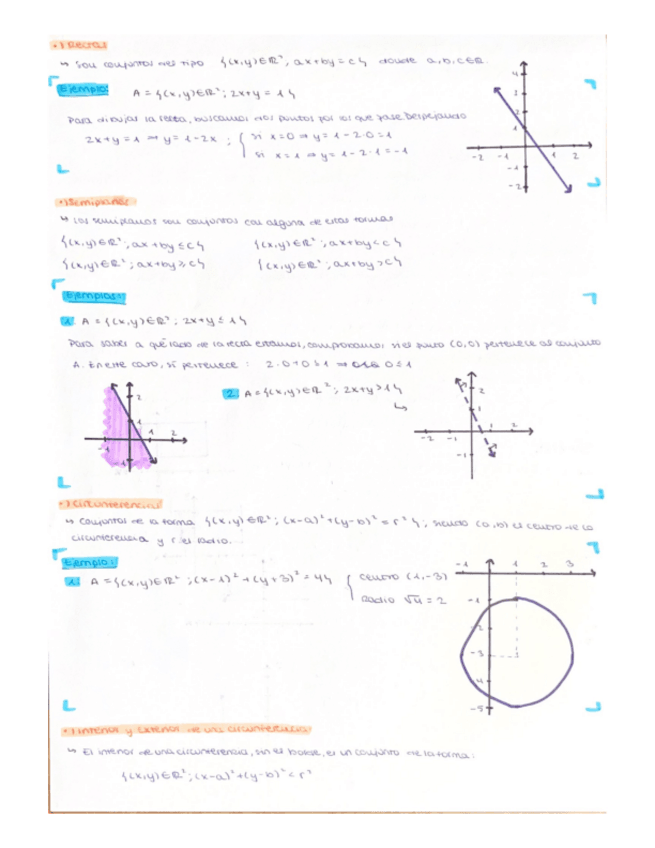 •) Rectas
↳ Son conjuntos del tipo {(x,y)∈ℝ², ax+by=c} donde a,b,c∈ℝ.
Ejemplo: A = {(x,y)∈ℝ²; 2x+y=1}
Para dibujar la recta, buscamos dos puntos por los que pase. Despejando
2x+y=1 ⇒ y=1-2x ; { si x=0 ⇒ y=1-2·0=1
si x=1 ⇒ y=1-2·1=-1
4
3
2
1
-2 -1 1 2
-1
-2
•) Semiplanos
↳ Los semiplanos son conjuntos con alguna de estas formas
{(x,y)∈ℝ²; ax+by≤c} {(x,y)∈ℝ²; ax+by<c}
{(x,y)∈ℝ²; ax+by≥c} {(x,y)∈ℝ²; ax+by>c}
Ejemplos:
1. A = {(x,y)∈ℝ²; 2x+y≤1}
Para saber a qué lado de la recta estamos, comprobamos si el punto (0,0) pertenece al conjunto
A. En este caso, sí pertenece: 2·0+0≤1 ⇒ 0≤1
2
1
-1 1 2
-1
2. A = {(x,y)∈ℝ²; 2x+y>1}
↳
2
1
-2 -1 1 2
-1
•) Circunferencias
↳ Conjuntos de la forma {(x,y)∈ℝ²; (x-a)²+(y-b)²=r²}, siendo (a,b) el centro de la
circunferencia y r el radio.
Ejemplo:
1. A = {(x,y)∈ℝ²; (x-1)²+(y+3)²=4} { centro (1,-3)
radio √4=2
-1 1 2 3
-1
-2
-3
-4
-5
•) Interior y exterior de una circunferencia
↳ El interior de una circunferencia, sin el borde, es un conjunto de la forma:
{(x,y)∈ℝ²; (x-a)²+(y-b)²<r²